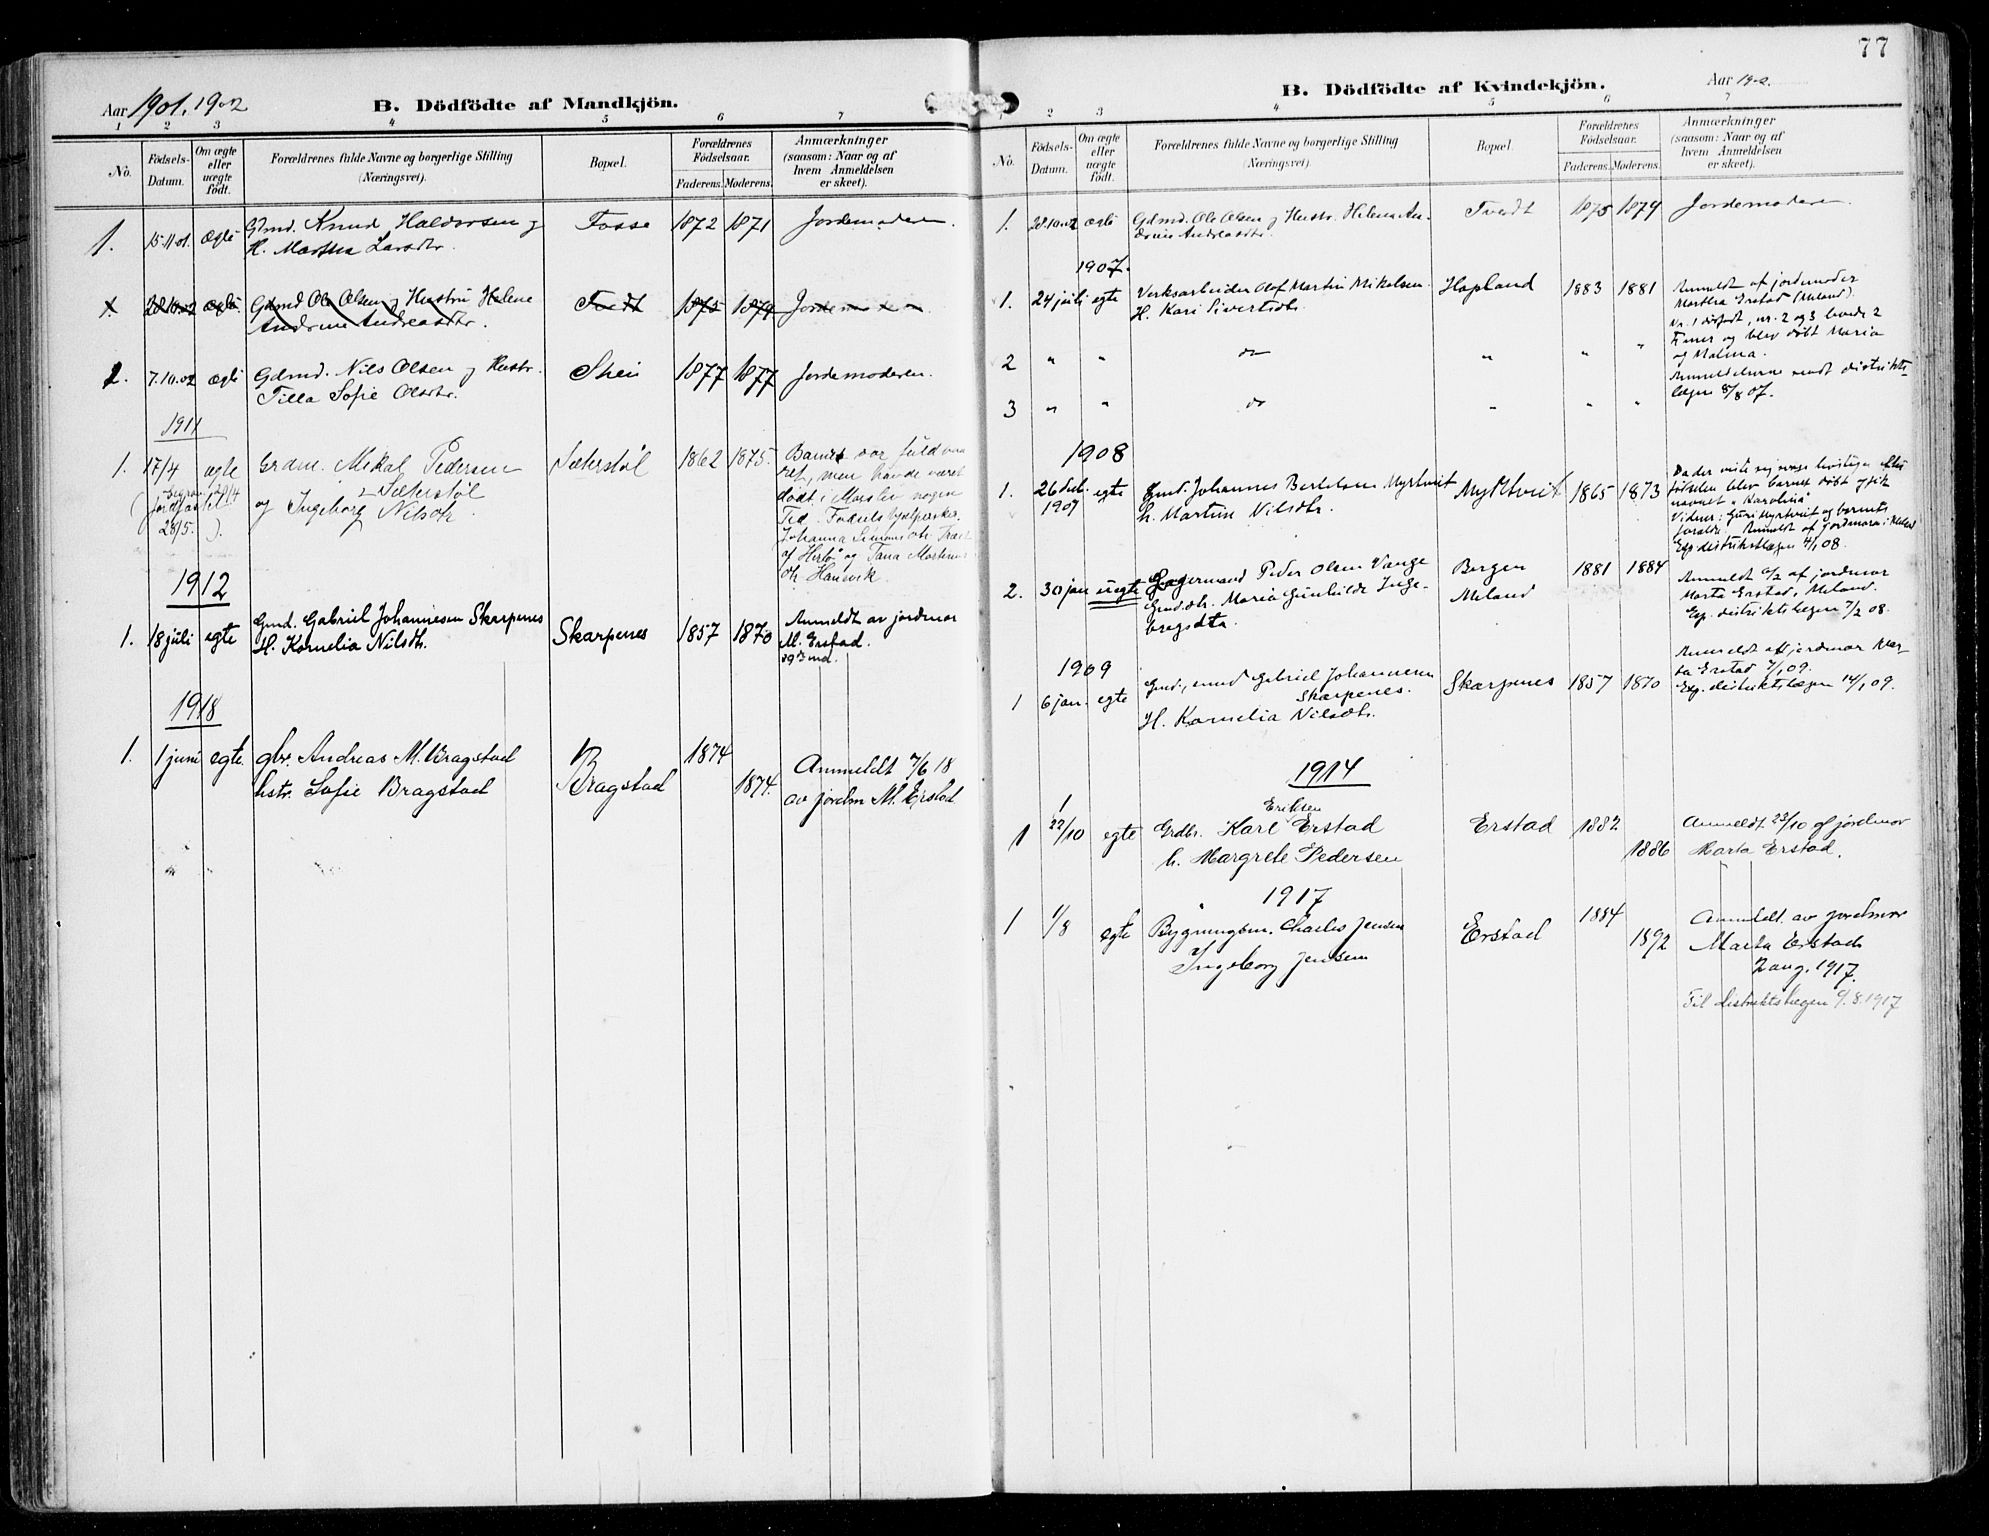 Aar 1901. 1902
B. Dödfödte af Mandkjön.
1 2 3 4 5 6 7
No. Födsels-Datum. Om ægte eller uægte födt. Forældrenes fulde Navne og borgerlige Stilling (Næringsvei). Bopæl. Forældrenes Födselsaar. Faderens. Moderens. Anmærkninger (saasom: Naar og af hvem Anmeldelsen er skeet).
1. 15.11.01. ægte Gdmd. Knud Haldorsen og Fosse 1872 1871 Jordemoderen.
H. Martha Larsdtr.
1. 28.10.02 ægte Gdmd Ole Olsen og Hustru Helene Tvedt 1875 1879 Jordemoderen.
Andrine Andreasdtr.
2. 7.10.02 ægte Gdmd. Nils Olsen og Hustr. Skeie 1877 1877 Jordemoderen.
Tilla Sofie Olsdtr.
1911
1. 17/4 ægte Grdm. Mikal Pedersen Sæterstøl 1862 1875. Barnet var fuldbaa
ret, men havde været
Sæterstøl
og Ingeborg Nilsdtr.
dødt i Morsliv nogen
Tid. Fødselshjælperske
Johanna Simonsdtr.
28/5.
af Hertø og Tana Martens
dtr. Hanevik
1912
1. 18 juli egte Gmd. Gabriel Johannesen Skarpenes Skarpenes 1857 1870 Anmeldt av jordmor
H. Kornelia Nilsdtr. M. Erstad.
1918
1. 1 juni egte. gbr. Andreas M. Bragstad Bragstad 1874 Anmeldt 7/6 18
hstr. Sofie Bragstad 1874. av jordm M. Erstad
77
Aar 1902.
B. Dödfödte af Kvindekjön.
1 2 3 4 5 6 7
No. Födsels-Datum. Om ægte eller uægte födt. Forældrenes fulde Navne og borgerlige Stilling (Næringsvei). Bopæl. Forældrenes Födselsaar. Faderens. Moderens. Anmærkninger (saasom: Naar og af hvem Anmeldelsen er skeet).
1. 28.10.02 ægte Gdmd. Ole Olsen og Hustr. Helene An- Tvedt 1875 1879 Jordemoderen.
drine Andreasdtr.
1907.
1. 24 juli egte Verksarbeider Olaf Martin Mikelsen Hopland 1883 1881 Anmeldt af jordemoder
H. Kari Sivertsdtr. Martha Erstad (Meland).
Nr. 1 dødfødt, nr. 2 og 3 levede 2
Timer og blev døbt Maria
2 " " do " " "
og Malina.
Anmeldelserne sendt distrikts-
lægen 8/8 07.
3 " " do " " "
1908
1. 26 deb. 1907 egte Gmd. Johannes Bertelsen Myrtveit Myrtveit 1865 1873
h. Martine Nilsdtr.
Da der viste sig svage livstegn efter
fødselen blev barnet døbt og fik
navnet "Karolina"
Vidner: Guri Myrtveit og barnets
forældre. Anmeldt af jordmora i Meland
Exp. distriktslægen 4/1 08.
2. 30 jan uegte Peder Olsen Vange Bergen 1881 1884 Anmeldt 6/2 af jordmor
Gmd.dtr. Maria Gunhilde Inge- Meland Marta Erstad, Meland.
brigsdtr. Exp. distriktslægen 7/2 08.
1909
1 6 jan. egte Gmd., smed Gabriel Johannesen Skarpenes. Skarpenes 1857 1870 Anmeldt af jordmor Mar-
ta Erstad 7/1 09.
H. Kornelia Nilsdtr. Exp. distriktslægen 14/1 09.
1914
1 22/10 egte Grdbr. Karl Eriksen Erstad Erstad 1882 Anmeldt 23/10 af jordmor
h. Margrete Pedersen 1886 Marta Erstad.
1917
1 1/8 egte Bygningsm. Charles Jensen Erstad 1884 Anmeldt av jordmor
Ingeborg Jensen 1892 Marta Erstad
2 aug. 1917.
Til distriktslægen 9/8. 1917